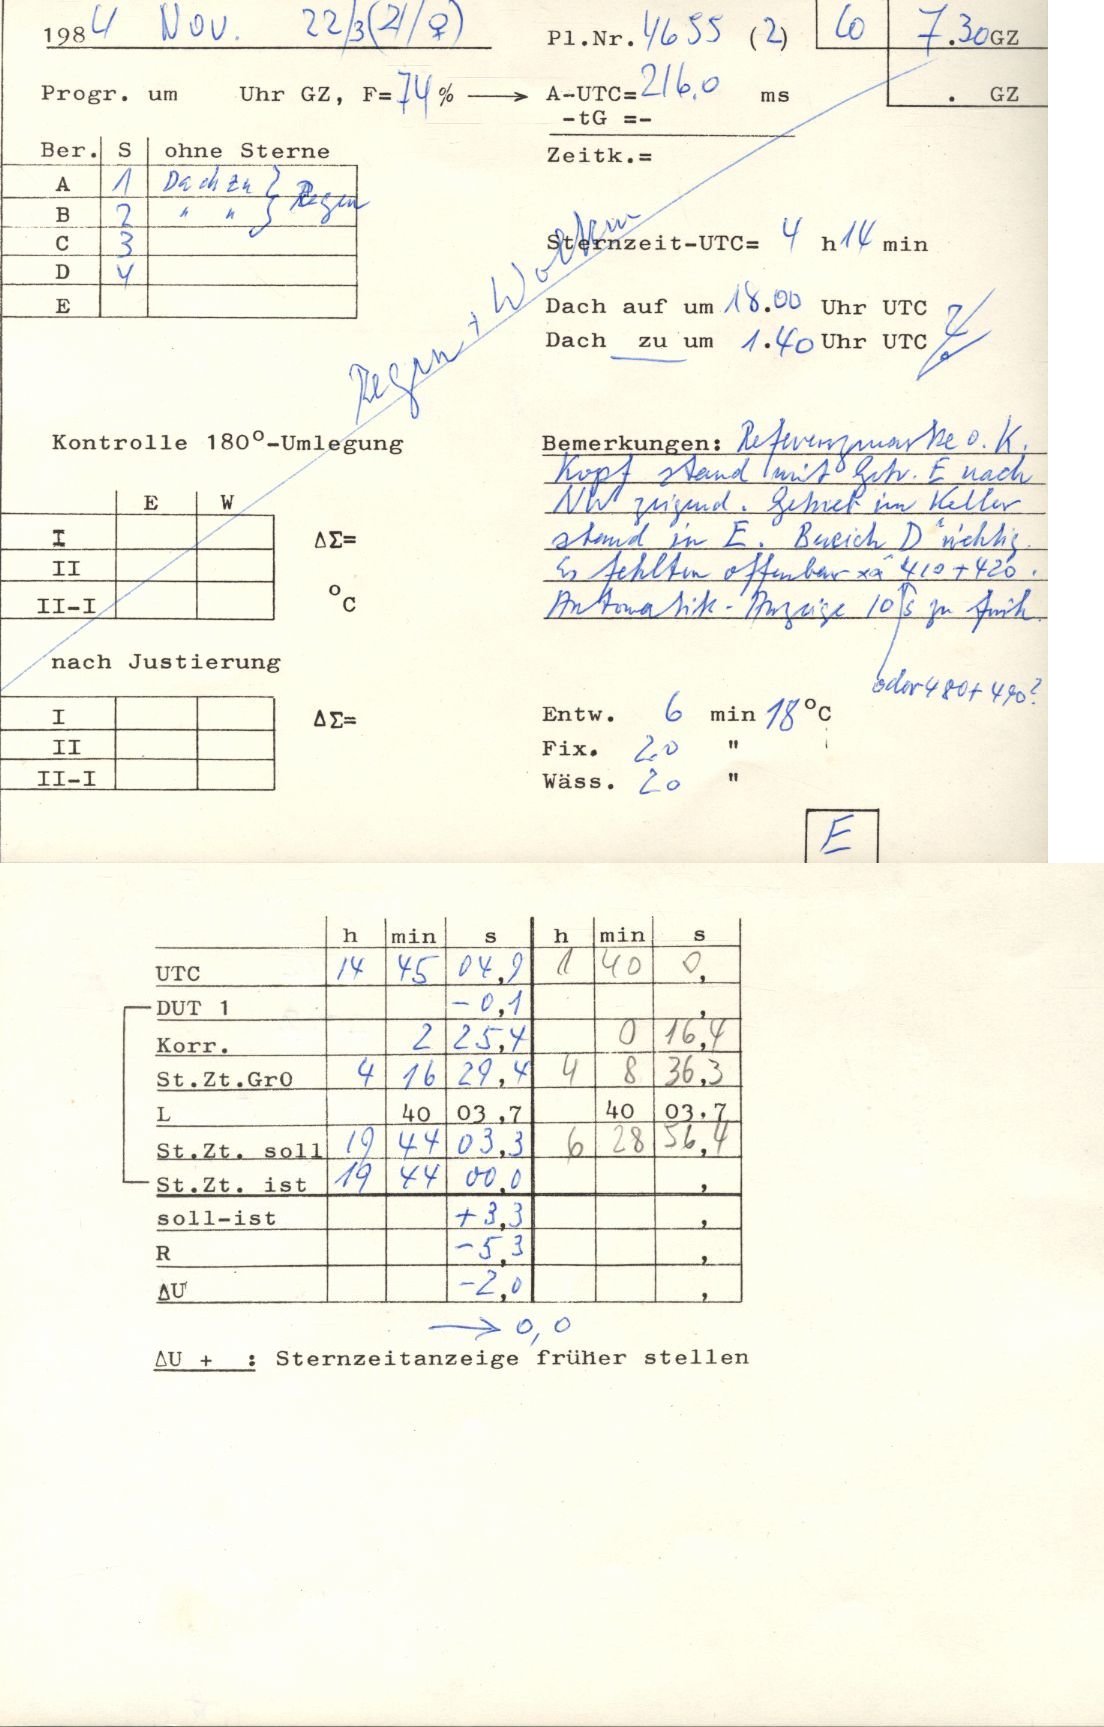 1984 Nov. 22/3(♃/♀) Pl.Nr. 4655 (2) 60 7.30 GZ
Progr. um Uhr GZ, F=74% → A-UTC=216.0 ms . GZ
-tG =-
Zeitk.=
Ber. S ohne Sterne
A 1 Dach zu } Regen
B 2 " " }
C 3
D 4
E
Sternzeit-UTC= 4 h 14 min
Dach auf um 18.00 Uhr UTC
Dach zu um 1.40 Uhr UTC
Regen + Wolken
Kontrolle 180°-Umlegung
E W
I ΔΣ=
II
II-I °C
Bemerkungen: Referenzmarke o.K.
Kopf stand mit Getr. E nach
NW zeigend. Gebiet im Keller
stand in E. Bereich D
Es fehlten offenbar 410+420.
Automatik-Anzeige 10 s zu früh.
oder 480+490?
nach Justierung
I ΔΣ=
II
II-I
Entw. 6 min 18°C
Fix. 20 "
Wäss. 20 "
E
h min s h min s
UTC 14 45 04,9 1 40 0,
DUT 1 -0,1 ,
Korr. 2 25,4 0 16,4
St.Zt.Gr0 4 16 29,4 4 8 36,3
L 40 03,7 40 03,7
St.Zt. soll 19 44 03,3 6 28 56,4
St.Zt. ist 19 44 00,0 ,
soll-ist +3,3 ,
R -5,3 ,
ΔU -2,0 ,
→ 0,0
ΔU + : Sternzeitanzeige früher stellen